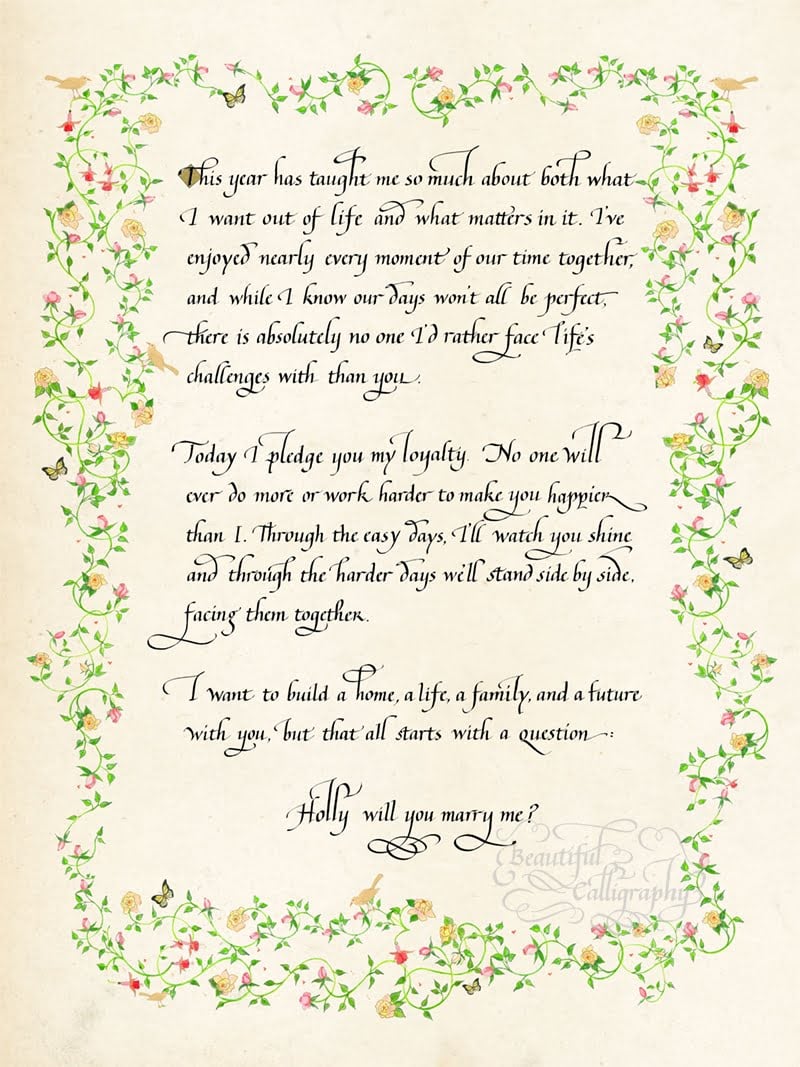 This year has taught me so much about both what
I want out of life and what matters in it. I've
enjoyed nearly every moment of our time together,
and while I know our days won't all be perfect,
there is absolutely no one I'd rather face life's
challenges with than you.
Today I pledge you my loyalty. No one will
ever do more or work harder to make you happier
than I. Through the easy days, I'll watch you shine
and through the harder days we'll stand side by side,
facing them together.
I want to build a home, a life, a family, and a future
with you, but that all starts with a question:
Holly will you marry me?
Beautiful
Calligraphy